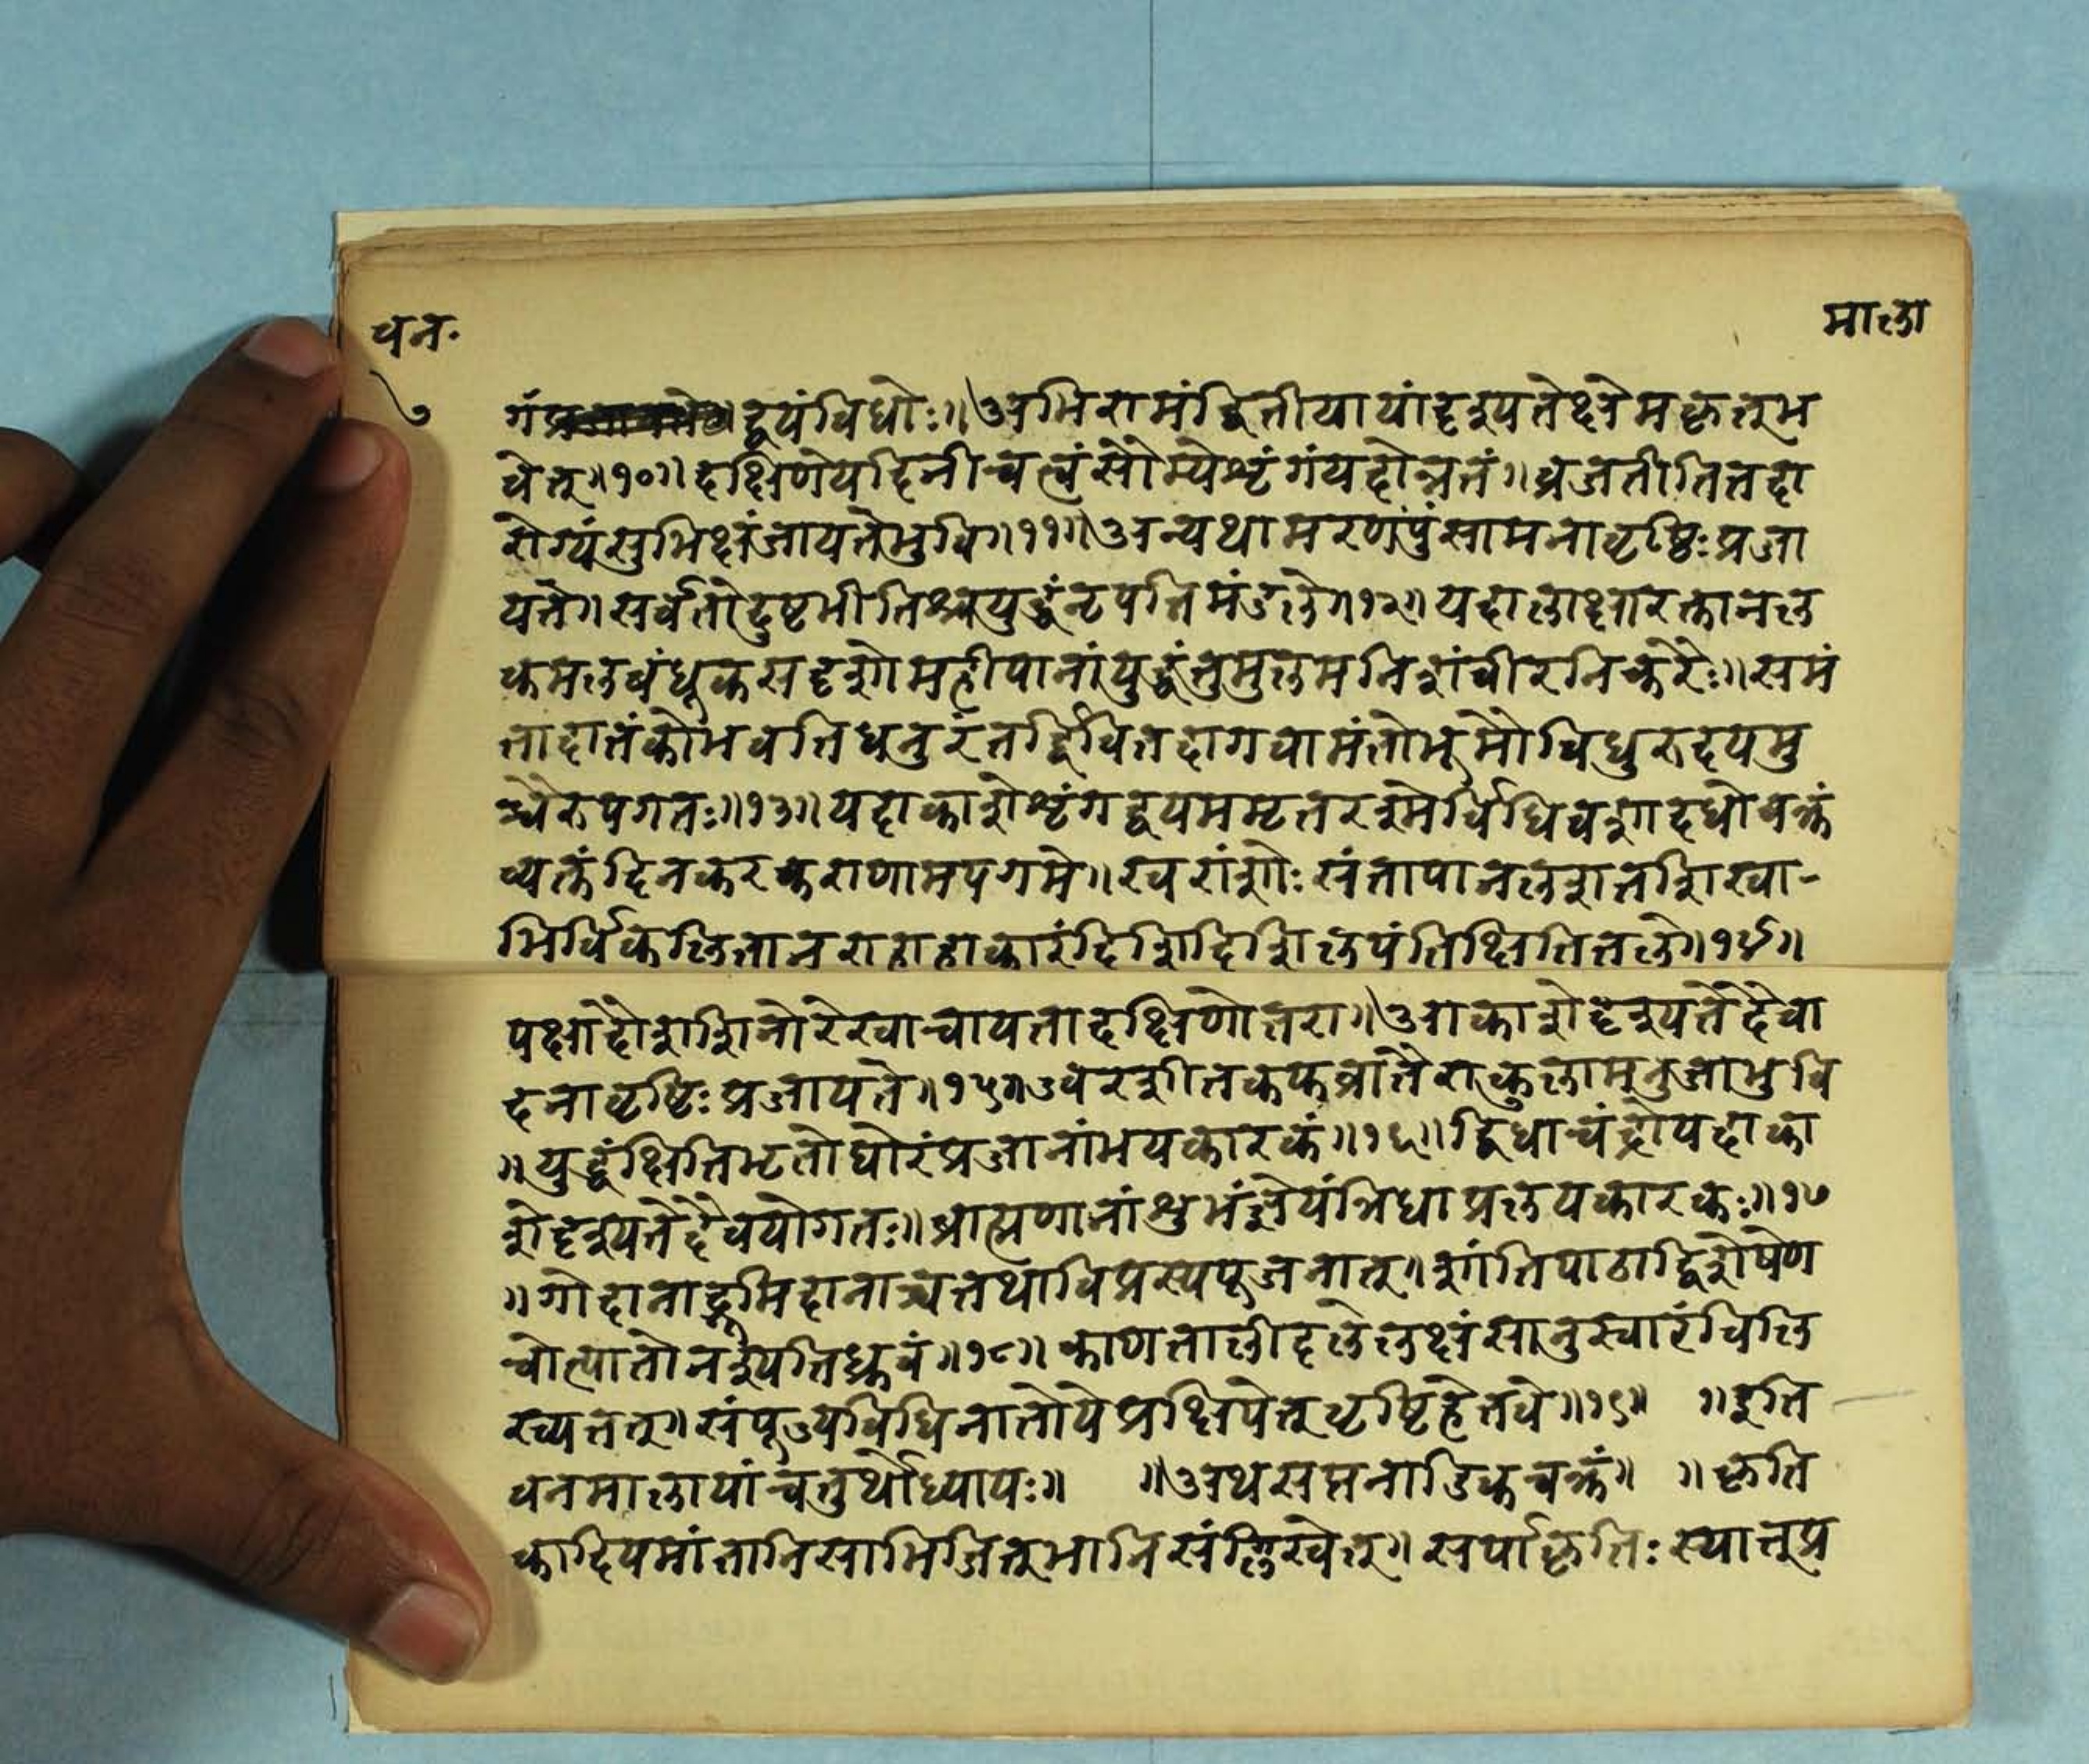 वन॰ माला
७
गंप्र द्वयंविधोः॥अभिरामंद्वितीयायांदृश्यतेक्षेमकृत्तुभ
वेत्॥१०॥दक्षिणेयदिनीचत्वंसौम्येशृंगंयदोन्नतं॥व्रजतीतितदा
रोग्यंसुभिक्षंजायतेभुवि॥११॥अन्यथामरणंपुंसामनावृष्टिःप्रजा
यते॥सर्वतोदुष्टभीतिश्चयुद्धंनृपतिमंडले॥१२॥यदालाक्षारक्तानल
कमलबंधूकसदृशोमहीपानांयुद्धंतुमुलमनिशंवीरनिकरैः॥समं
तादातंकोभवतिधनुरंतर्द्विवितदागवामंतोभूमौविधुरुदयमु
च्चैरुपगतः॥१३॥यदाकाशेशृंगद्वयममृतरश्मेर्विधिवशादधोवक्त्रं
व्यक्तंदिनकरकराणामपगमे॥खरांशोःसंतापानलशतशिखा-
भिर्विकलितानराहाहाकारंदिशिदिशिलपंतिक्षितितले॥१४॥
पक्षादौशशिनोरेखाचायतादक्षिणोत्तरा॥आकाशेदृश्यतेदैवा
दनावृष्टिःप्रजायते॥१५॥ज्वरशीतकफव्रातैराकुलामनुजाभुवि
॥युद्धंक्षितिभृतोघोरंप्रजानांभयकारकं॥१६॥द्विधाचंद्रोयदाका
शेदृश्यतेदैवयोगतः॥ब्राह्मणानांशुभंज्ञेयंत्रिधाप्रलयकारकः॥१७
॥गोदानाद्भूमिदानाच्चतथाविप्रस्यपूजनात्॥शांतिपाठाद्विशेषेण
चोत्पातोनश्यतिध्रुवं॥१८॥काणतालीदलेलक्षंसानुस्वारंविलि
ख्यतत्॥संपूज्यविधिनातोयेप्रक्षिपेत्वृष्टिहेतवे॥१९॥ ॥इति
वनमालायांचतुर्थोध्यायः॥ ॥अथसप्तनाडिकचक्रं॥ ॥कृति
कादियमांतानिसाभिजित्भानिसंलिखेत्॥सर्पाकृतिःस्यात्प्र